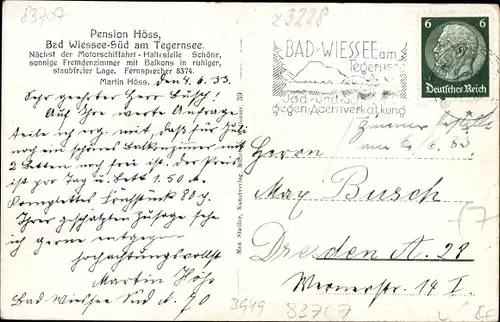 83707
z 3228
Pension Höss,
Bad Wiessee-Süd am Tegernsee.
Nächst der Motorschiffahrt-Haltestelle Schöne,
sonnige Fremdenzimmer mit Balkons in ruhiger,
staubfreier Lage. Fernsprecher 8374.
Martin Höss. den 4.6.33.
Sehr geehrter Herr Busch!
Auf Ihre werte Anfrage
teile ich erg. mit, daß für Juli
noch ein schönes Balkonzimmer mit
2 Betten noch frei ist. Der Preis
ist per Tag u. Bett 1.50 M.
Komplettes Frühstück 80 ₰.
Ihrer geschätzten Zusage sehe
ich gerne entgegen
hochachtungsvollst
Martin Höß
Bad Wiessee Süd N. 70
Max Stadler, Kunstverlag, 39
BAD-WIESSEE am
Tegernsee
Jod- und
gegen Adernverkalkung
6 6
Deutsches Reich
Zimmer bestellt
am 6.33
Herrn
Max Busch
Dresden A. 28
Wernerstr. 14 I.
3949
83707